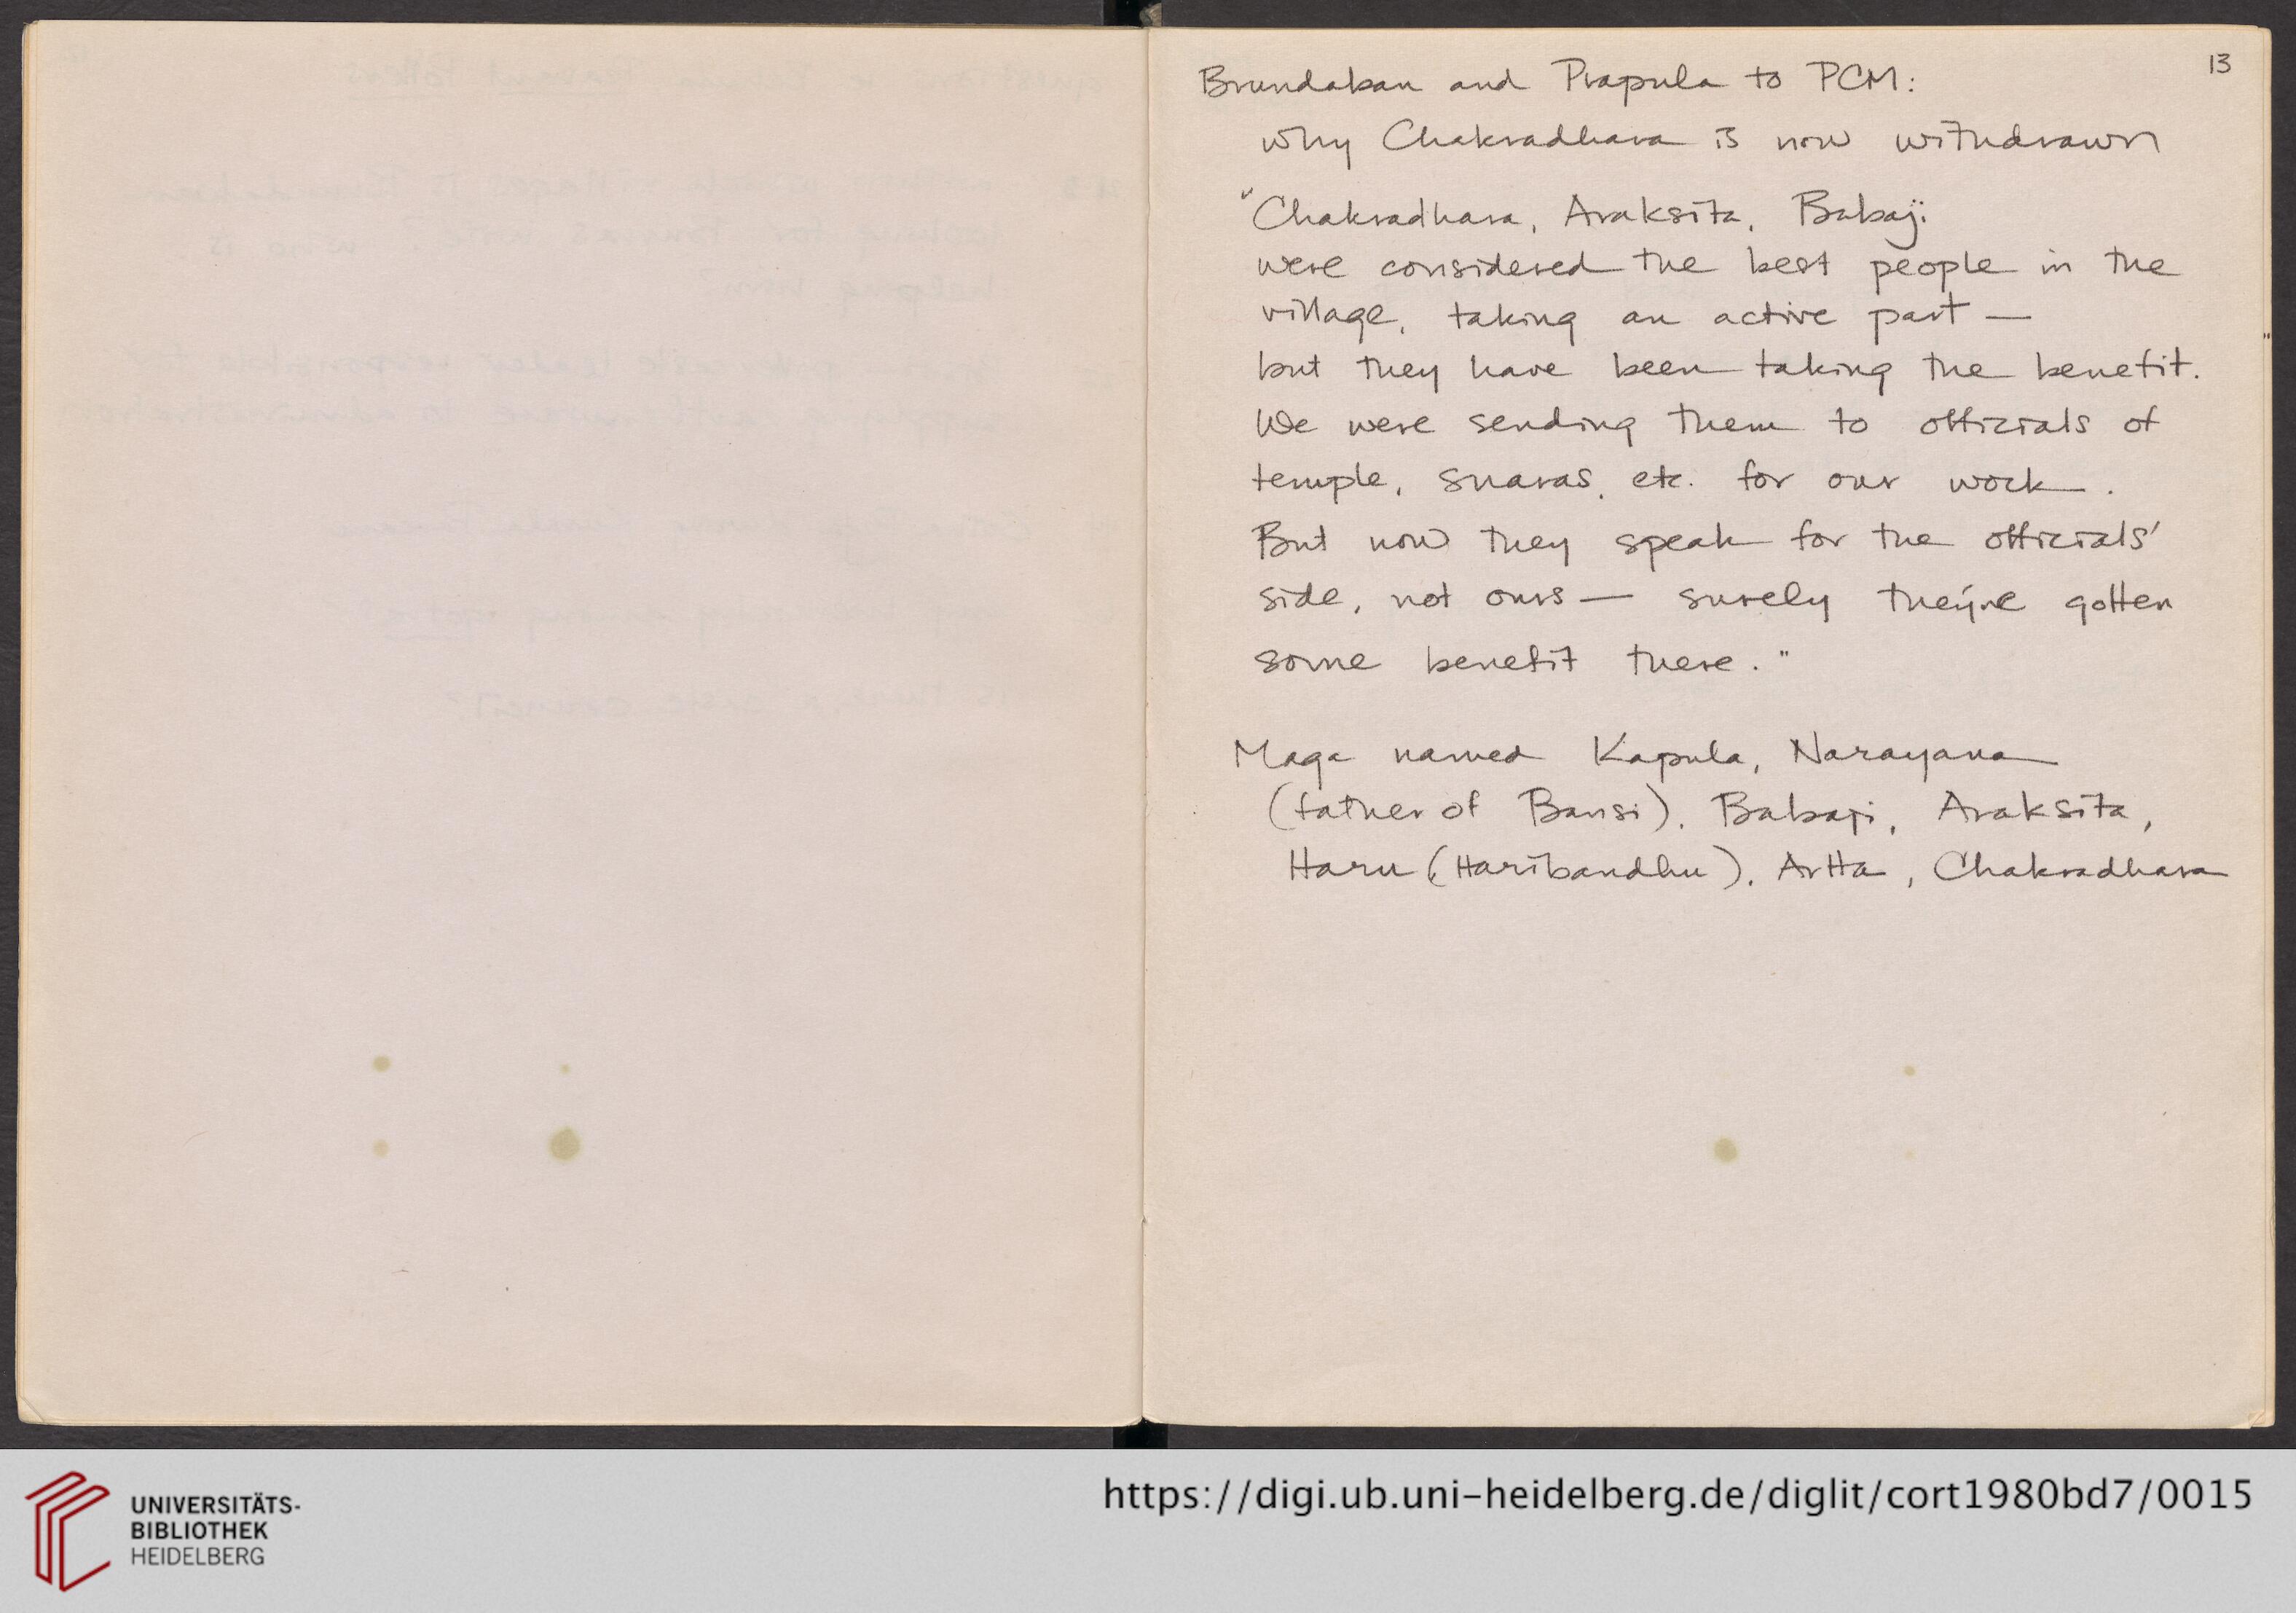 13
Brundaban and Prapula to PCM:
why Chakradhara is now withdrawn
"Chakradhara, Araksita, Babaji
were considered the best people in the
village, taking an active part —
but they have been taking the benefit.
We were sending them to officials of
temple, snaras, etc. for our work.
But now they speak for the officials'
side, not ours — surely they've gotten
some benefit there."
Maga named Kapula, Narayana
(father of Bansi), Babaji, Araksita,
Haru (Haribandhu), Artta, Chakradhara
UNIVERSITÄTS-
BIBLIOTHEK
HEIDELBERG
https://digi.ub.uni-heidelberg.de/diglit/cort1980bd7/0015